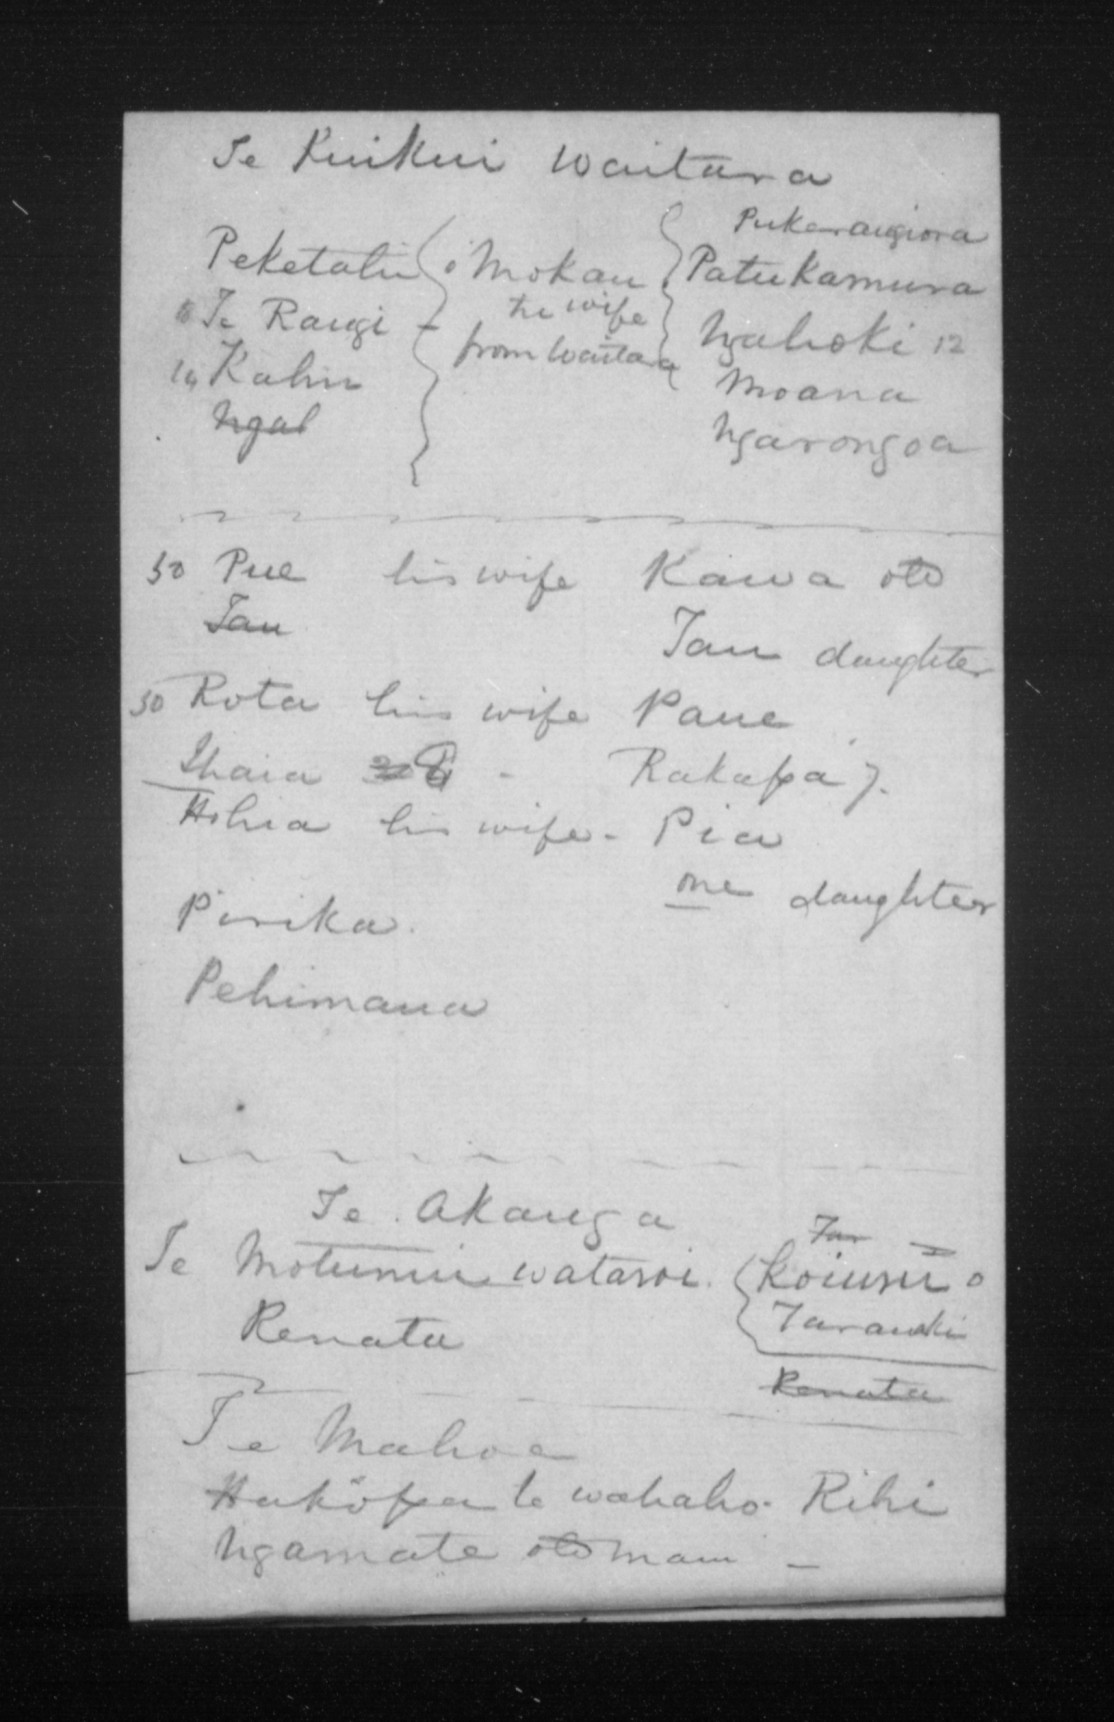 Te Kuikui Waitara
Pukerangiora
Peketahi Mokau Patukamura
Te Rangi the wife Ngahoki 12
from Waitara
14 Kahu Moana
Ngal
Ngarongoa
50 Pue his wife Kawa old
Tau
Tau daughter
50 Rota his wife Pane
Ihaia - Rakapa 7.
Hohia his wife - Pia
one daughter
Pirika.
Pehimana
Te Akanga
Te Motumiu wataroi.
Taranaki
Renata
Renata
Te Mahoe
Hakopa te wahaho. Rihi
Ngamate old man -